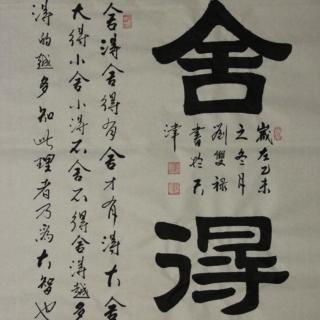 舍得
歲在乙未
之冬月
劉雙祿
書於天
津
舍得舍得有舍才有得大舍
大得小舍小得不舍不得舍得越多
得的越多知此理者乃為大智也